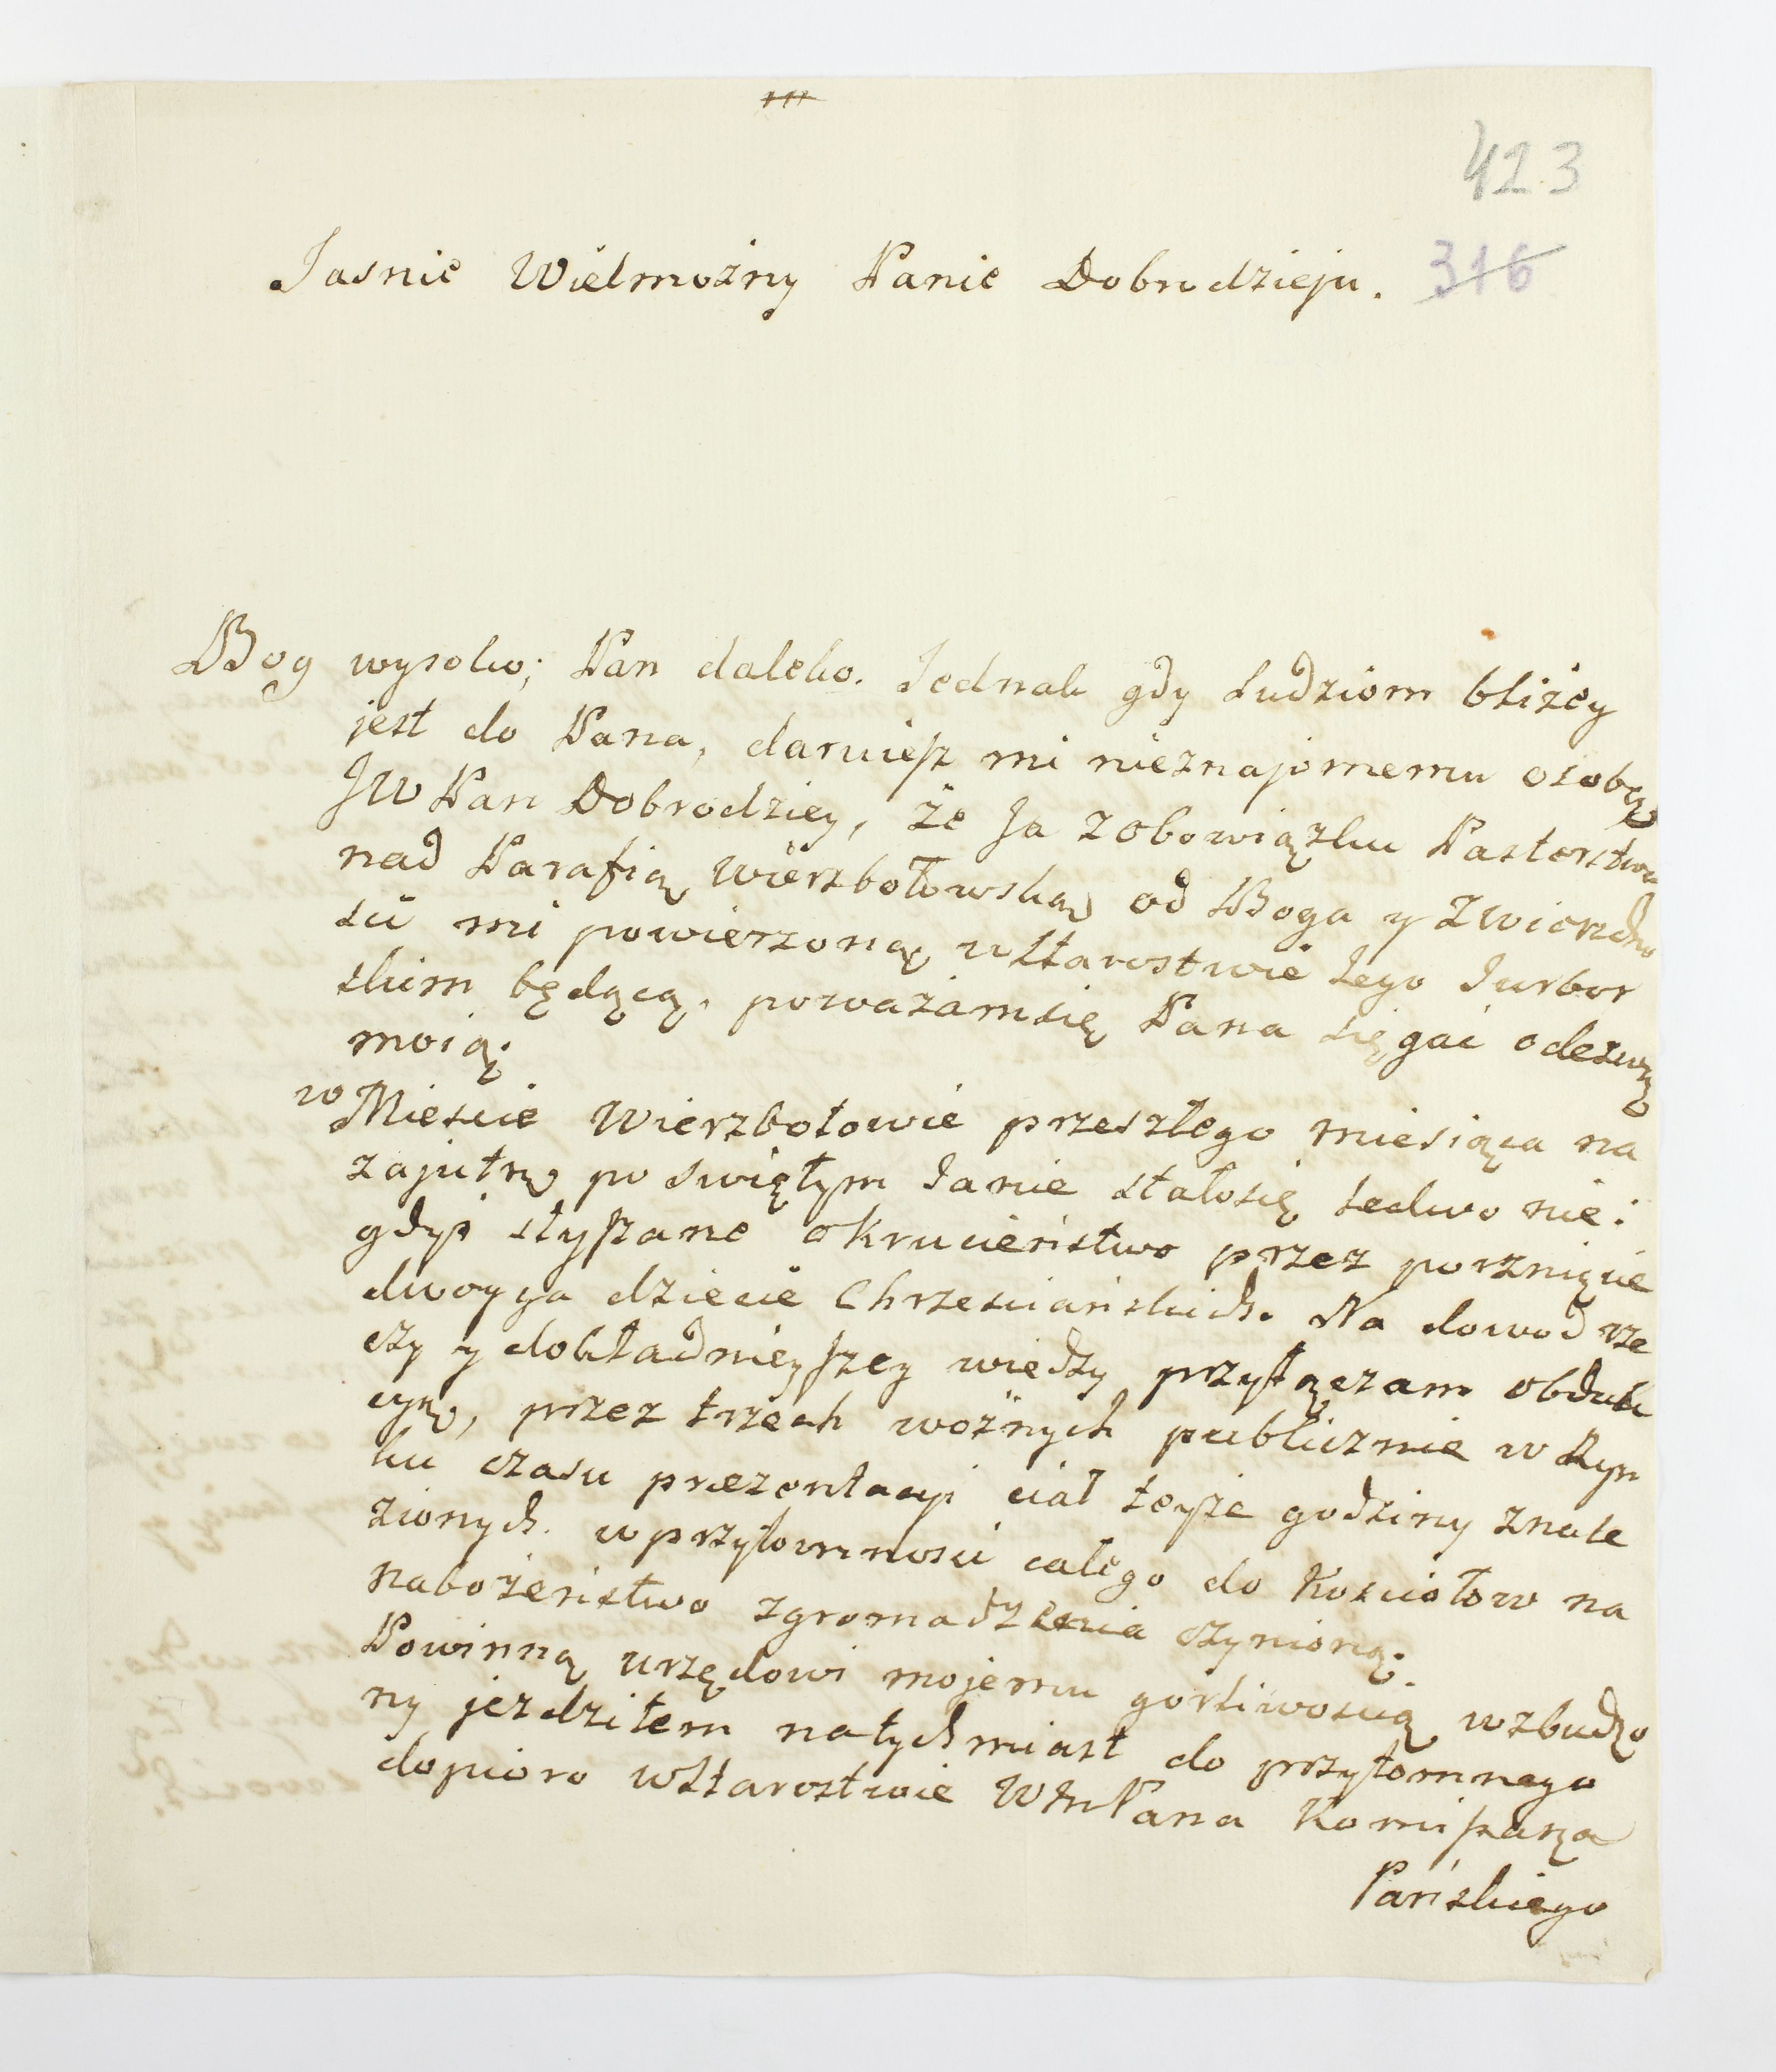 423
Jasnie Wielmożny Panie Dobrodzieju.
316
Bog wysoko; Pan daleko. Jednak gdy Ludziom bliżey
jest do Pana, daruiesz mi nieznajomemu osobę
JW Pan Dobrodziey, że Ja z obowiązku Pasterstwa
nad Parafią Wierzbołowską od Boga y Zwierzchno
sci mi powierzoną w Starostwie Jego Jurbor
skim będącą, poważam się Pana sięgać odezwą
moią.
w Miescie Wierzbołowie przeszłego miesiąca na
zajutrz po swiętym Janie stało się ledwo nie:
gdyś słyszane okrucieństwo przez porznięcie
dwoyga dziecie Chrzesciańskich. Na dowod rze
czy y dokładnieyszey wiedzy przyłączam obduk
cyą, przez trzech woźnych publicznie w Ryn
ku czasu prezentacyi ciał teyże godziny znale
zionych. w przytomnosci całego do Kosciołow na
nabożeństwo zgromadzenia czynioną.
Powinną urzędowi mojemu gorliwoscią wzbudzo
ny jezdziłem natychmiast do przytomnego
dopioro w Starostwie W Pana Komissarza
Pańskiego